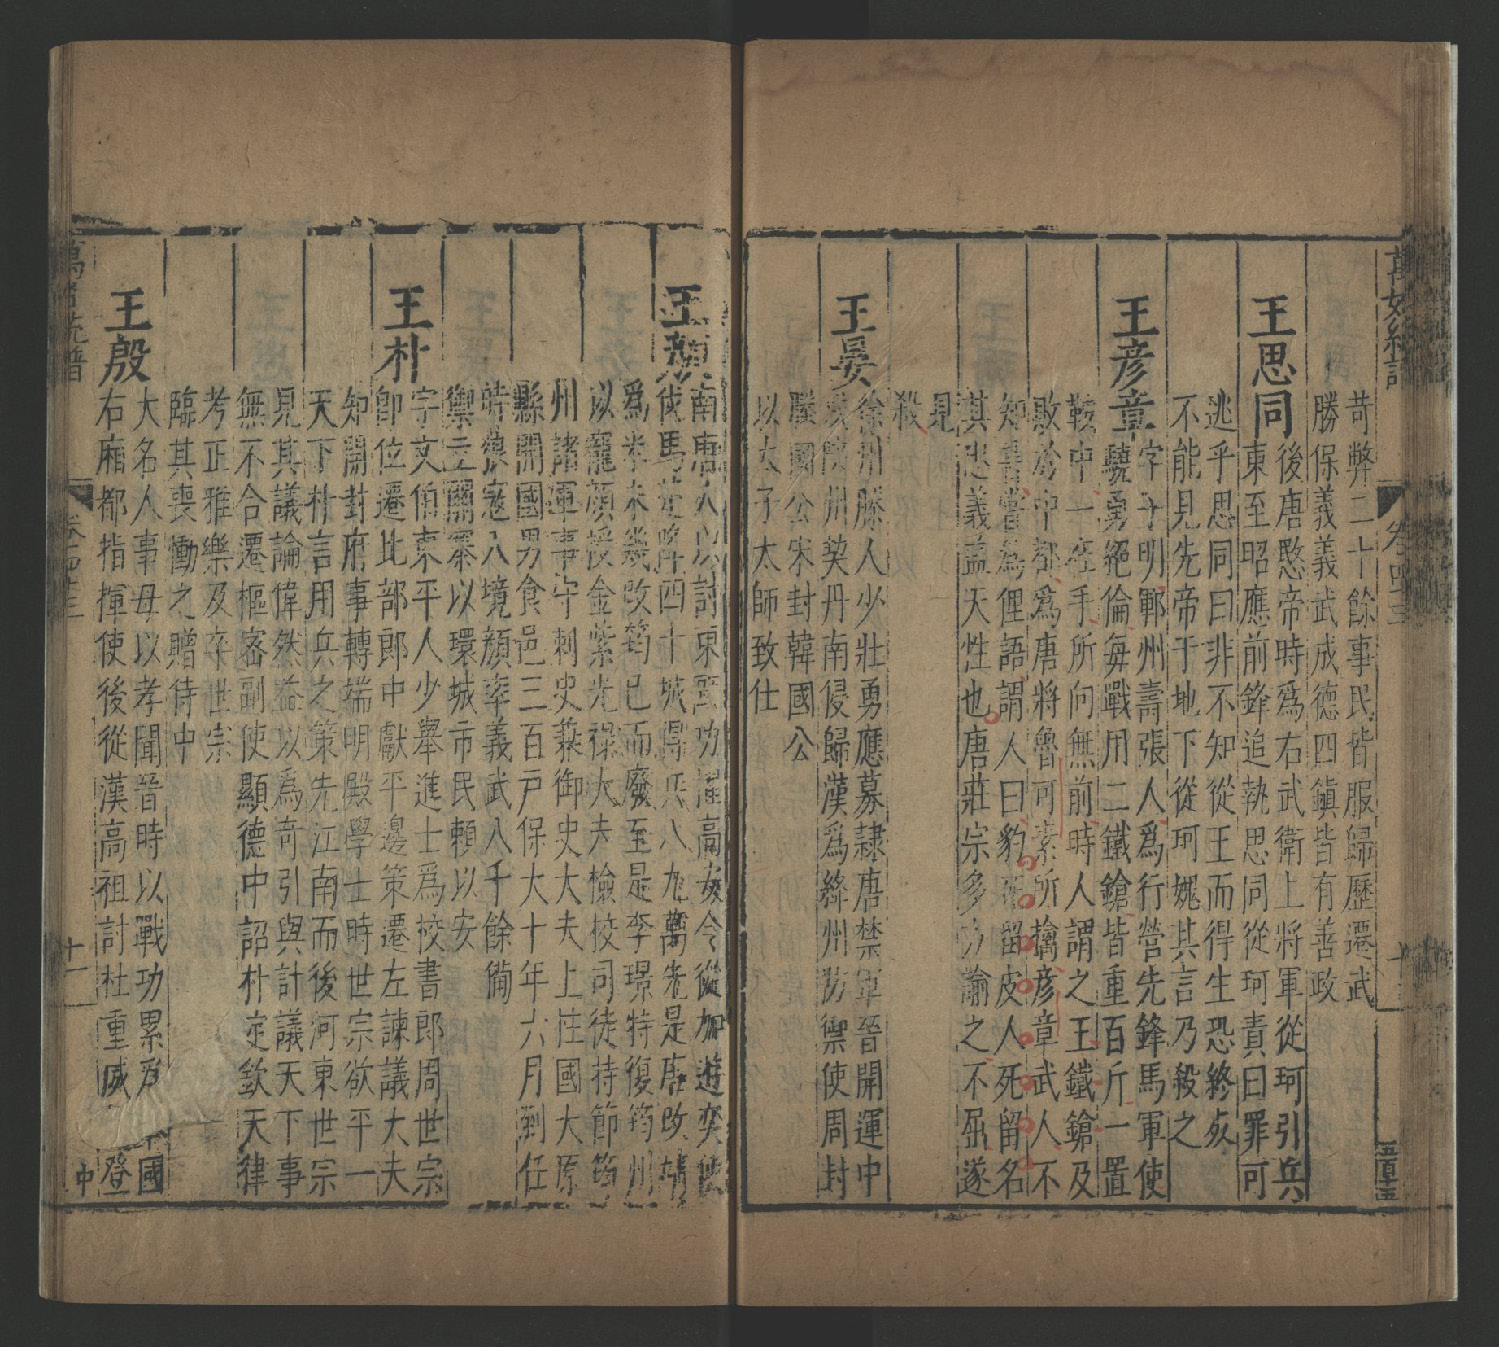 苛弊二十餘事民皆服歸歷遷武
勝保義義武成德四鎮皆有善政
王思同
後唐愍帝時爲右武衛上將軍從珂引兵
東至昭應前鋒追執思同從珂責曰罪可
逃乎思同曰非不知從王而得生恐終死
不能見先帝于地下從珂媿其言乃殺之
王彥章
字子明鄆州壽張人爲行營先鋒馬軍使
驍勇絕倫每戰用二鐵鎗皆重百斤一置
鞍中一在手所向無前時人謂之王鐵鎗及
敗於中都爲唐將魯奇所擒彥章武人不
知書嘗爲俚語謂人曰豹死留皮人死留名
其忠義蓋天性也唐莊宗多方諭之不屈遂
見
殺
王晏
徐州滕人少壯勇應募隸唐禁軍晉開運中
戍陝州契丹南侵歸漢爲絳州防禦使周封
滕國公宋封韓國公
以太子太師致仕
王顏
南唐人以討東 功 高安令從加遊奕使
使馬 陣四十城得兵八九萬先是唐改靖
爲 州未幾改筠已而廢至是李璟特復筠州
以寵顏授金紫光祿大夫檢校司徒持節筠
州諸軍事守刺史兼御史大夫上柱國大原
縣開國男食邑三百戶保大十年六月到任
時 寇入境顏率義武八千餘備
禦立關寨以環城市民賴以安
王朴
字文伯東平人少舉進士爲校書郎周世宗
卽位遷比部郎中獻平邊策遷左諫議大夫
知開封府事轉端明殿學士時世宗欲平一
天下朴言用兵之策先江南而後河東世宗
見其議論偉然益以爲奇引與計議天下事
無不合遷樞密副使顯德中詔朴定欽天律
考正雅樂及卒世宗
臨其喪慟之贈侍中
王殷
大名人事母以孝聞晉時以戰功累爲 國
右廂都指揮使後從漢高祖討杜重威 登
中
萬姓統譜
卷一百四十三
十一